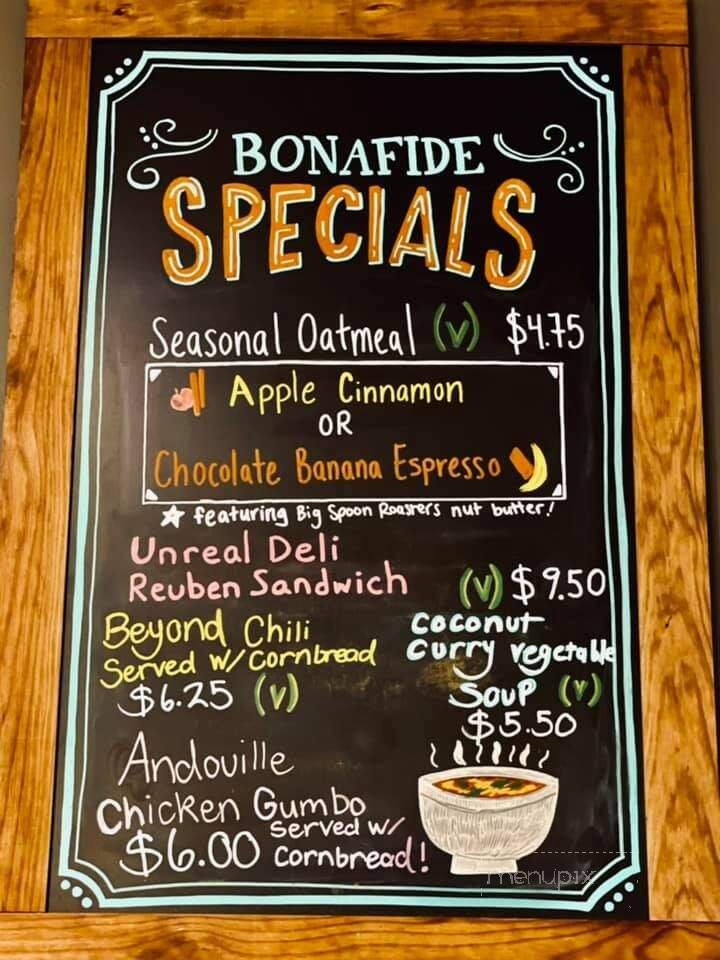 BONAFIDE
SPECIALS
Seasonal Oatmeal (v) $4.75
Apple Cinnamon
OR
Chocolate Banana Espresso
☆ featuring Big Spoon Roasters nut butter!
Unreal Deli
Reuben Sandwich (v) $9.50
Beyond Chili
Served w/ Cornbread
$6.25 (v)
Coconut
Curry Vegetable
Soup (v)
$5.50
Andouille
Chicken Gumbo
$6.00 Served w/
Cornbread!
menupix